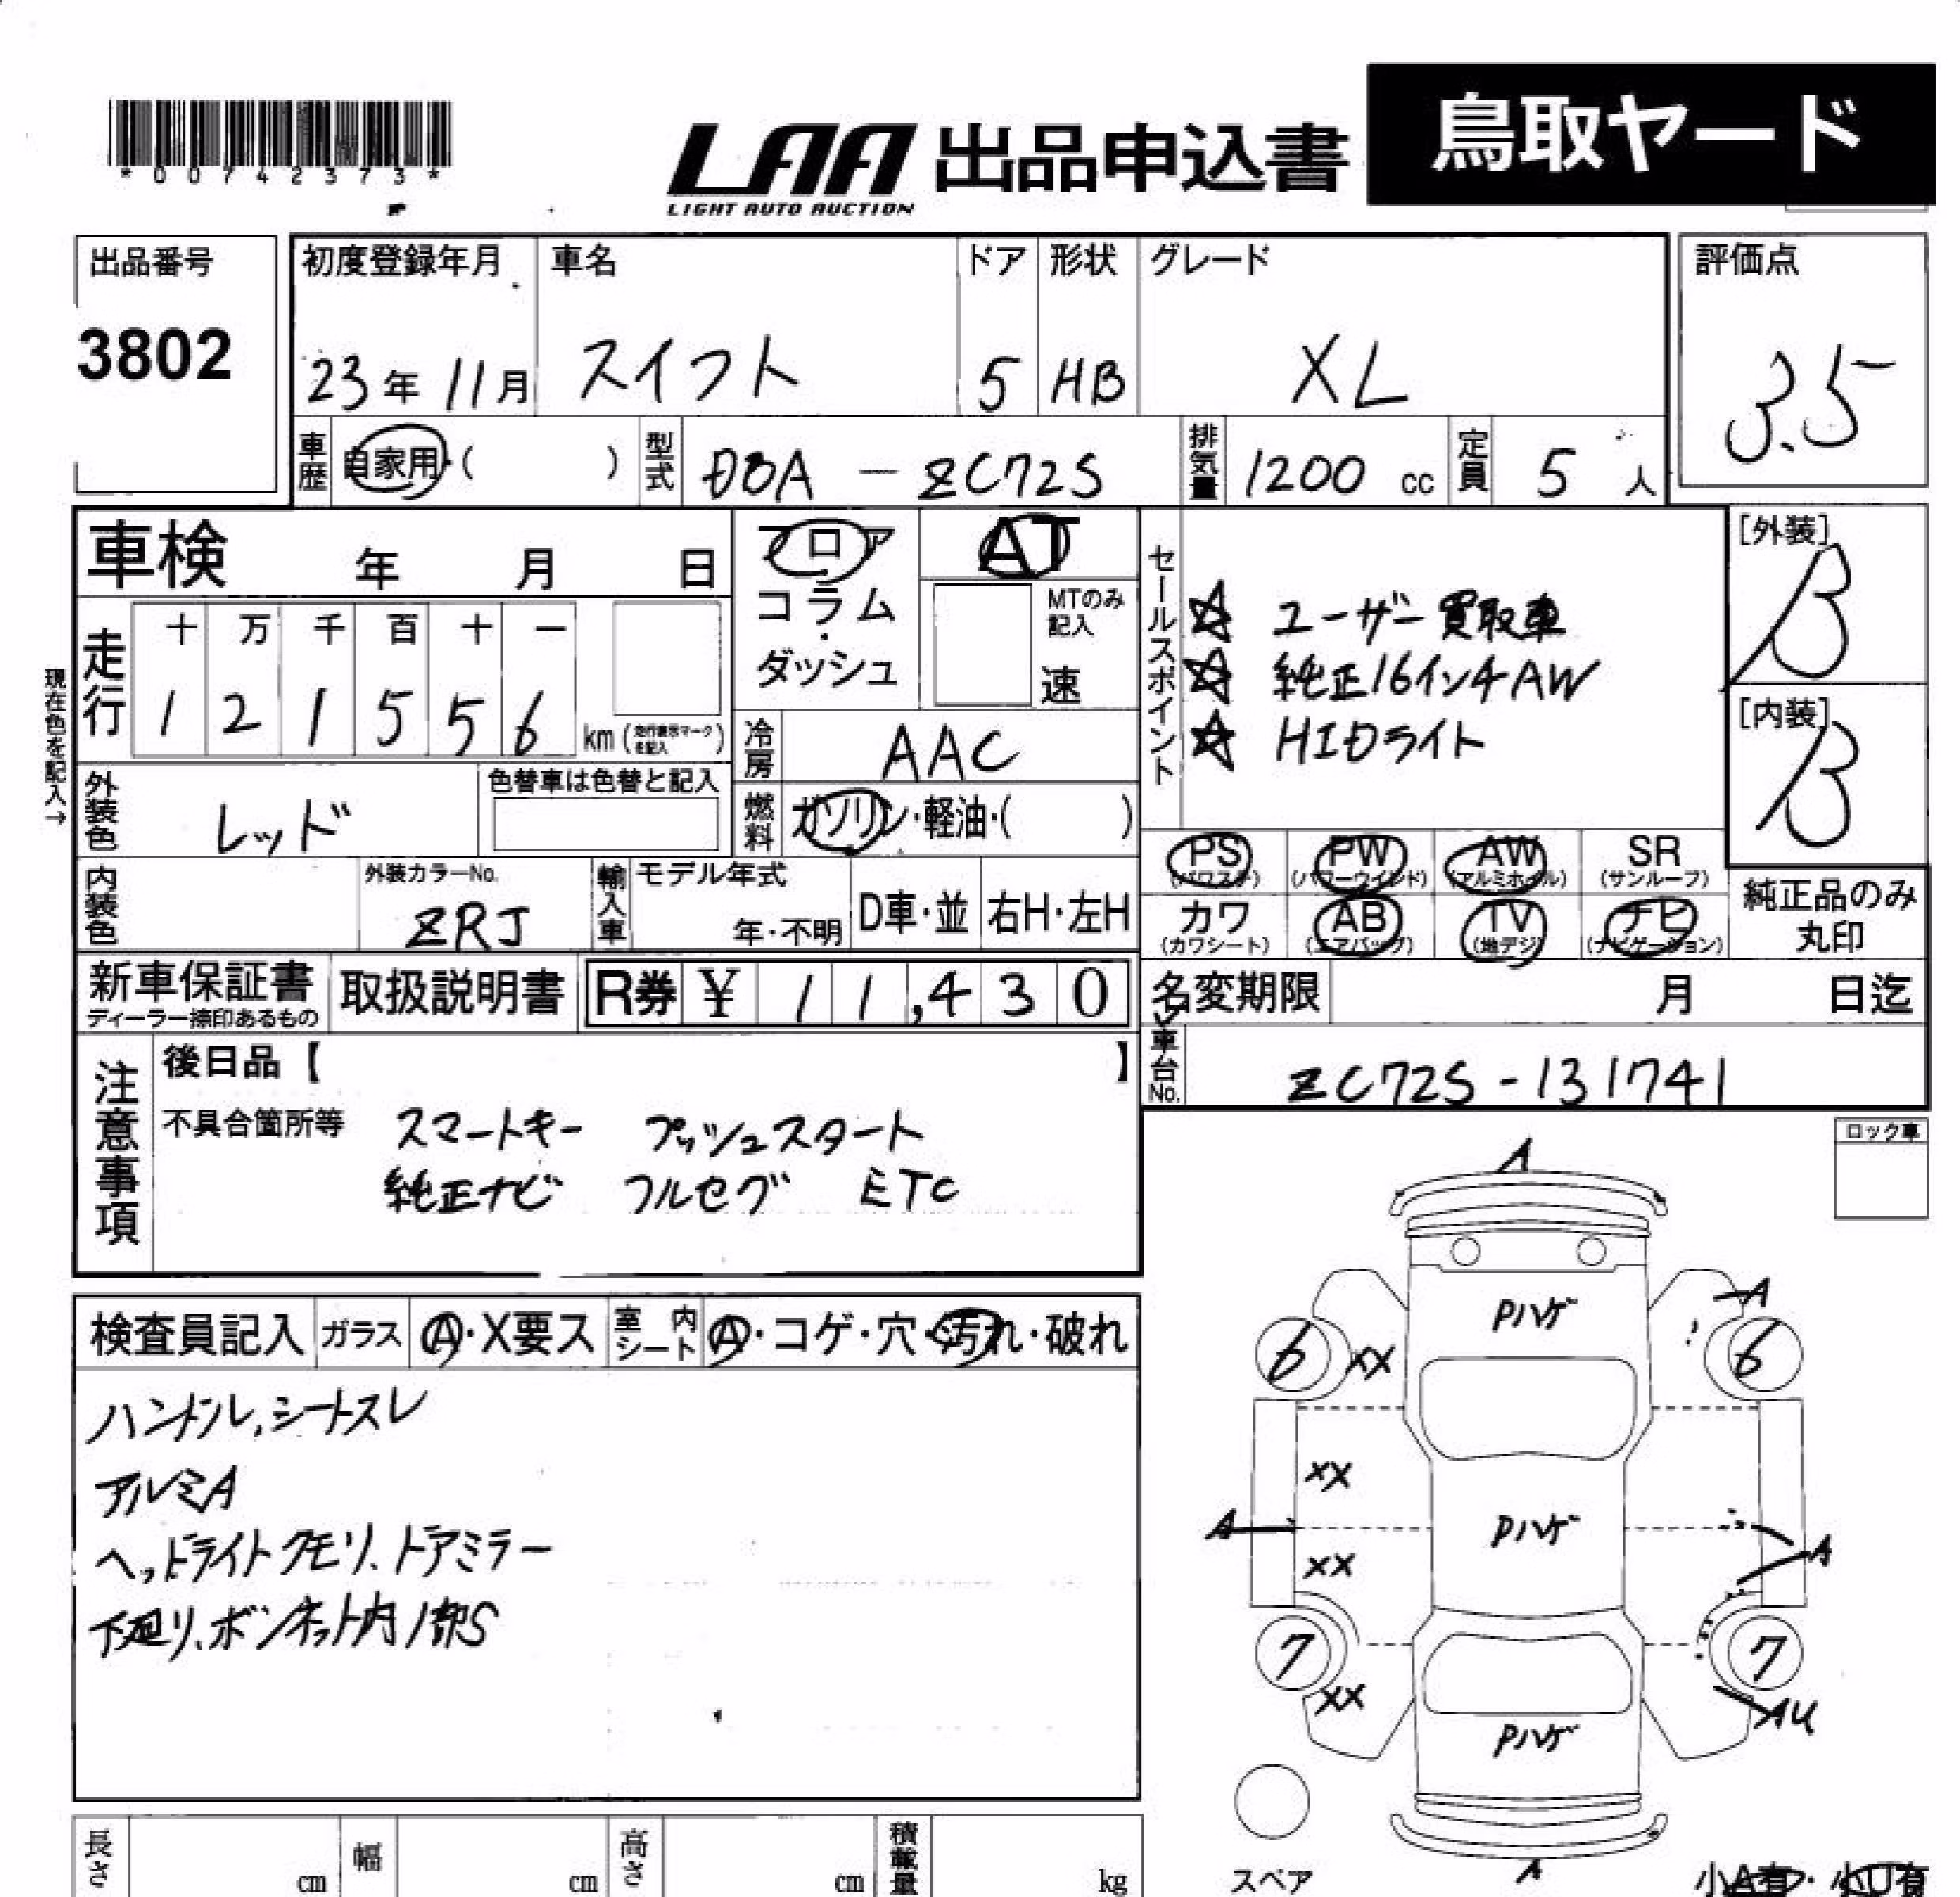 *00742373*
LAA 出品申込書 鳥取ヤード
LIGHT AUTO AUCTION
出品番号 初度登録年月 車名 ドア 形状 グレード 評価点
3802 23年11月 スイフト 5 HB XL 3.5
車歴 自家用・( ) 型式 DBA-ZC72S 排気量 1200 cc 定員 5 人
車検 年 月 日 フロア・コラム・ダッシュ AT
MTのみ記入 速
セールスポイント
☆ ユーザー買取車
☆ 純正16インチAW
☆ HIDライト
[外装] B
[内装] B
現在色を記入→
走行 十 万 千 百 十 一
1 2 1 5 5 6 km (走行表示マークを記入)
冷房 AAC
外装色 レッド 色替車は色替と記入
燃料 ガソリン・軽油・( )
PS (パワステ) PW (パワーウインド) AW (アルミホイル) SR (サンルーフ)
カワ (カワシート) AB (エアバッグ) TV (地デジ) ナビ (ナビゲーション)
純正品のみ丸印
内装色 外装カラーNo. ZRJ 輸入車 モデル年式 年・不明 D車・並 右H・左H
新車保証書 ディーラー捺印あるもの 取扱説明書 R券 ¥ 11,430
名変期限 月 日迄
車台No. ZC72S-131741
注意事項 後日品【 】
不具合箇所等 スマートキー プッシュスタート
純正ナビ フルセグ ETC
ロック車
検査員記入 ガラス A・X要ス 室内シート A・コゲ・穴・汚れ・破れ
ハンドル,シートスレ
アルミA
ヘッドライトクモリ、ドアミラー
下廻り、ボンネット内1部S
A
Pハゲ A
6 XX 6
XX
A Pハゲ A
XX
7 7
XX Pハゲ AU
A
スペア 小A有・小U有
長さ cm 幅 cm 高さ cm 積載量 kg